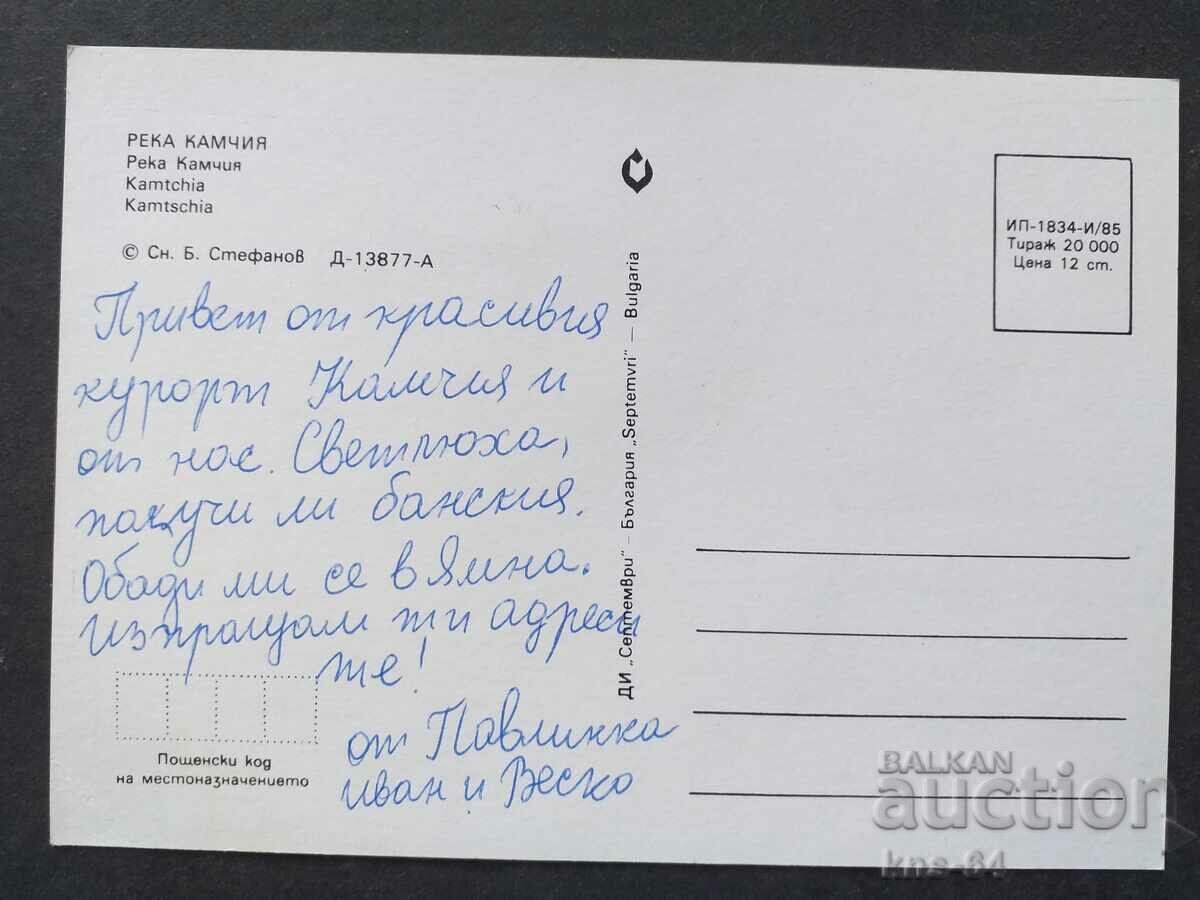 РЕКА КАМЧИЯ
Река Камчия
Kamtchia
Kamtschia
© Сн. Б. Стефанов Д-13877-А
Привет от красивия
курорт Камчия и
от нас. Светлюха,
получи ли банския.
Обади ми се в Ямна.
Изпращам ти адреси
те!
от Павлинка
Иван и Веско
Пощенски код
на местоназначението
ДИ „Септември" – България „Septemvri" – Bulgaria
ИП-1834-И/85
Тираж 20 000
Цена 12 ст.
BALKAN
auction
kns-64